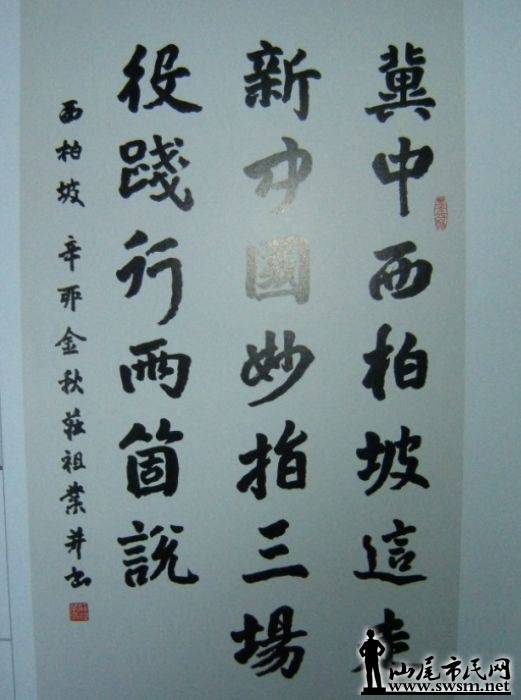 冀中西柏坡這走
新中國妙指三場
役踐行兩箇說
西柏坡 辛卯金秋莊祖業并書
汕尾市民网
www.swsm.net